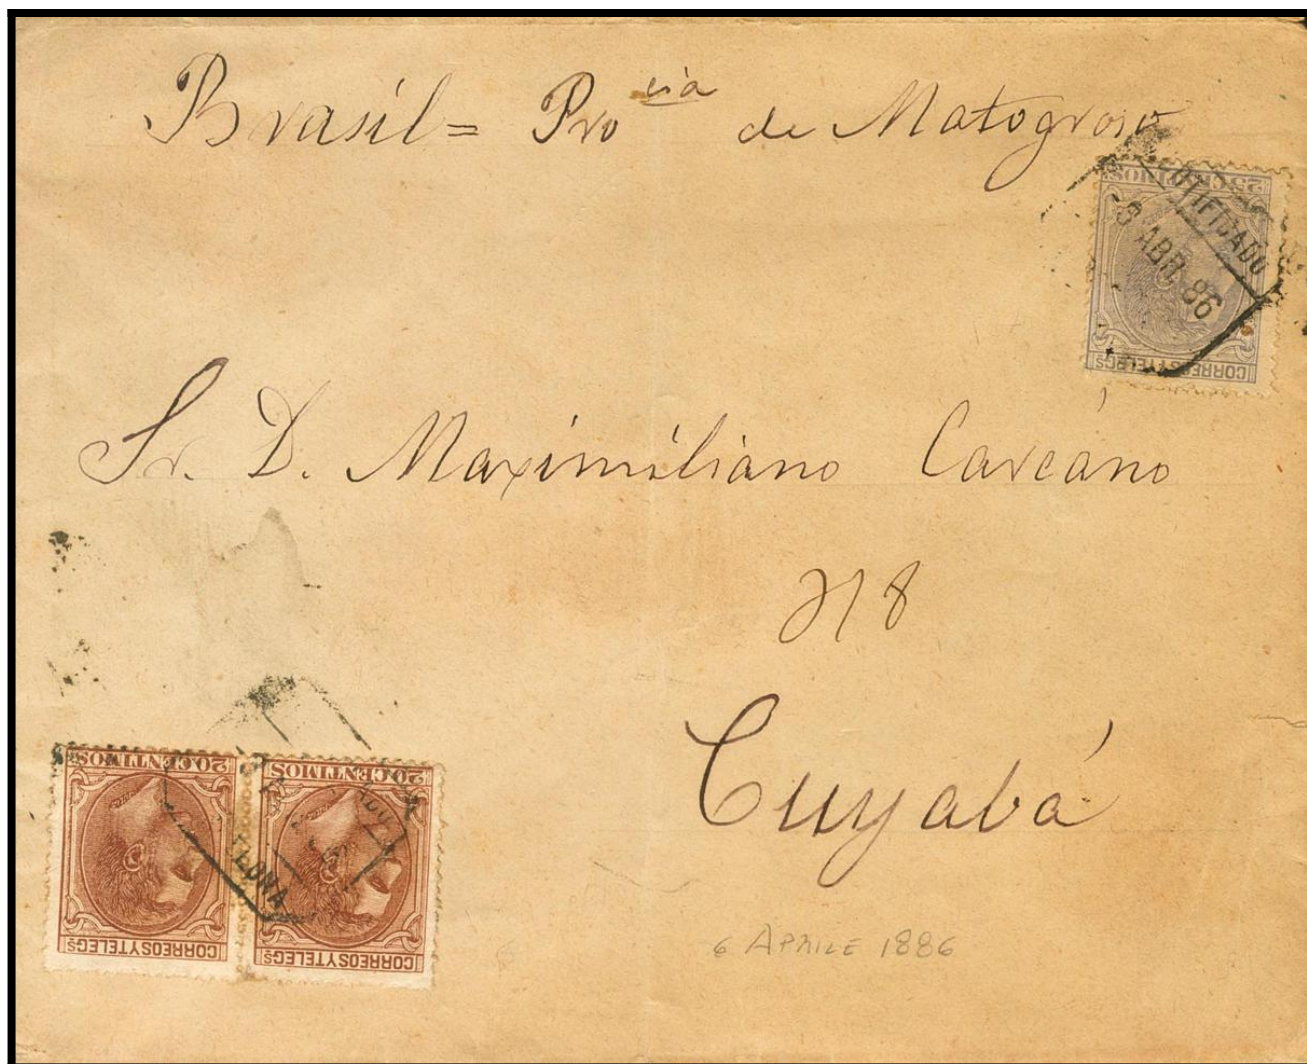 Brasil = Pro cia de Matogroso
25 CENTIMOS
CERTIFICADO
6 ABR. 86
CORREOS Y TELEGS
Sr. D. Maximiliano Carcano
318
Cuyabá
20 CENTIMOS
20 CENTIMOS
CORREOS Y TELEGS
CORREOS Y TELEGS
6 APRILE 1886